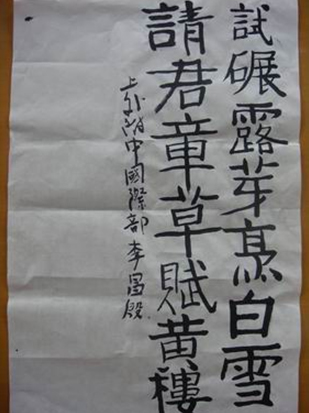 試碾露芽烹白雪
請君章草賦黄樓
上外附中國際部 李昌殷